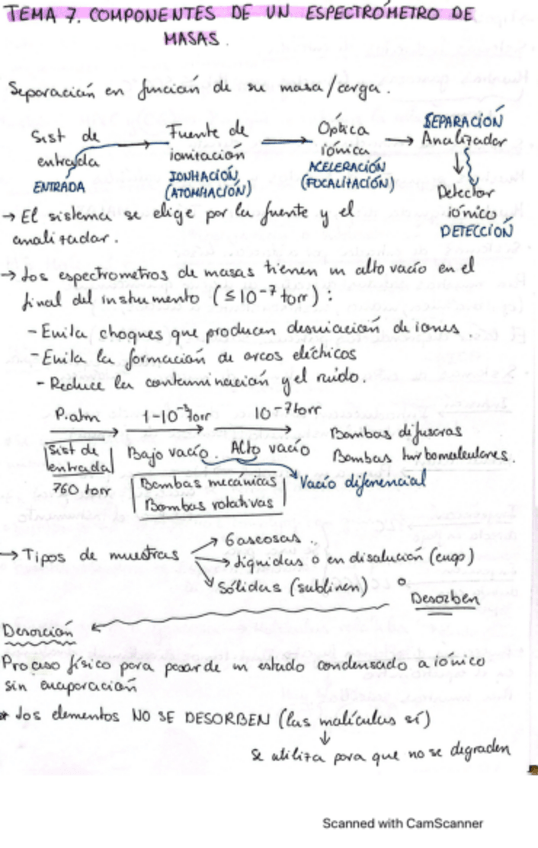 TEMA 7. COMPONENTES DE UN ESPECTRÓMETRO DE
MASAS.
Separación en función de su masa/carga.
Sist de entrada → Fuente de ionización → Óptica iónica → Analizador
SEPARACIÓN
ENTRADA
IONIZACIÓN
(ATOMIZACIÓN)
ACELERACIÓN
(FOCALIZACIÓN)
Detector
iónico
DETECCIÓN
→ El sistema se elige por la fuente y el
analizador.
→ Los espectrometros de masas tienen un alto vacío en el
final del instrumento (≤10-7 torr):
- Evita choques que producen desviación de iones
- Evita la formación de arcos eléctricos
- Reduce la contaminación y el ruido.
P.atm 1-10-3 torr 10-7 torr
Sist de entrada Bajo vacío. Alto vacío
Bombas difusoras
Bombas turbomoleculares.
760 torr
Bombas mecánicas
Bombas rotativas
Vacío diferencial
→ Tipos de muestras
→ Gaseosas.
→ Líquidas o en disolución (evap)
→ Sólidas (sublimen) o Desorben
Desorción
Proceso físico para pasar de un estado condensado a iónico
sin evaporación
* Los elementos NO SE DESORBEN (las moléculas sí)
↓
Se utiliza para que no se degraden
Scanned with CamScanner